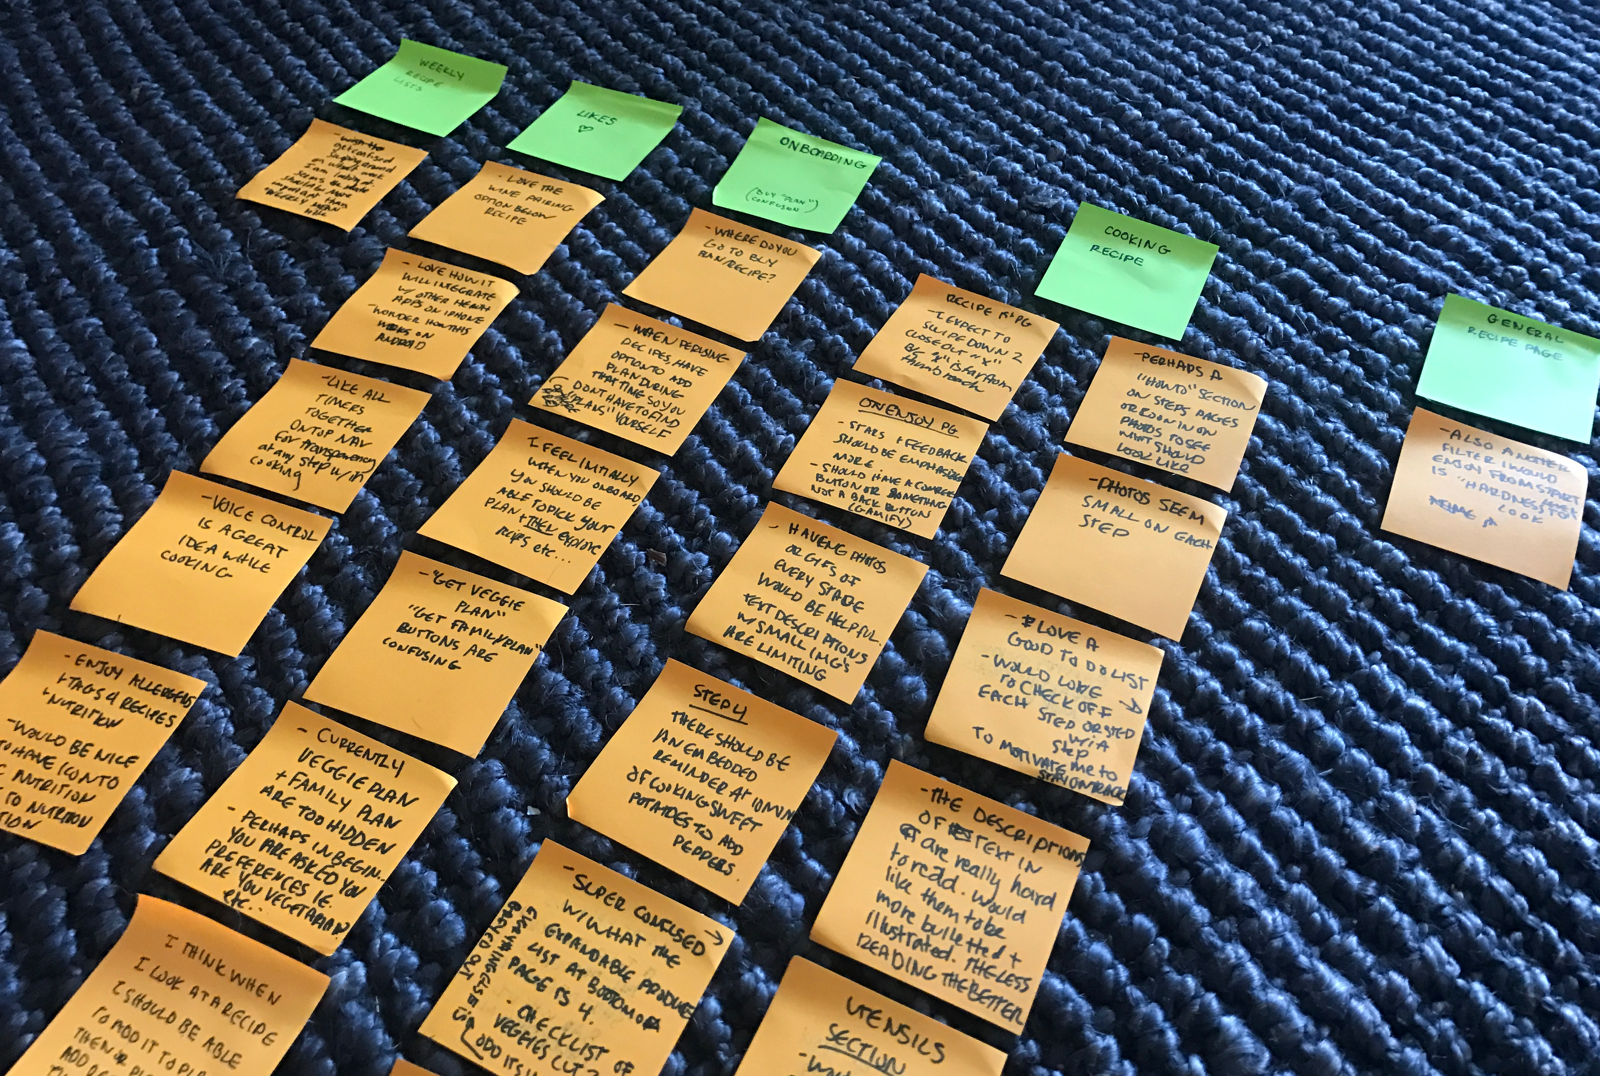 WEEKLY
RECIPE
LISTS
get confused
LIKES
♡
- LOVE THE
WINE PAIRING
OPTION BELOW
RECIPE
- LOVE HOW IT
WILL INTEGRATE
W/ OTHER HEALTH
APPS ON IPHONE
- WONDER HOW THIS
WORKS ON
ANDROID
- LIKE ALL
TIMERS
TOGETHER
ON TOP NAV
FOR transparency
at any step w/in
cooking
- VOICE CONTROL
IS A GREAT
IDEA WHILE
COOKING
- ENJOY ALLERGENS
+ TAGS 4 RECIPES
+ NUTRITION
- WOULD BE NICE
TO HAVE ICON TO
NUTRITION
TO NUTRITION
ONBOARDING
(BUY "PLAN")
CONFUSION
- WHERE DO YOU
GO TO BUY
PLAN/RECIPE?
- WHEN PERUSING
RECIPES, HAVE
OPTION TO ADD
PLAN DURING
THAT TIME SO YOU
DONT HAVE TO FIND
"PLANS" YOURSELF
I FEEL INITIALLY
WHEN YOU ONBOARD,
YOU SHOULD BE
ABLE TO PICK YOUR
PLAN + THEN explore
recipes etc...
- "GET VEGGIE
PLAN"
"GET FAMILY PLAN"
BUTTONS ARE
CONFUSING
- CURRENTLY
VEGGIE PLAN
+ FAMILY PLAN
ARE TOO HIDDEN
- PERHAPS IN BEGIN...
YOU ARE ASKED YOU
PREFERENCES I.E.
ARE YOU VEGETARIAN?
etc...
I THINK WHEN
I LOOK AT A RECIPE
I SHOULD BE ABLE
TO ADD IT TO
THEN
ADD
COOKING
RECIPE
RECIPE PG
- I EXPECT TO
SWIPE DOWN 2
CLOSE OUT "X"
B/C "X" IS far from
thumb reach
ON ENJOY PG
- STARS + FEEDBACK
SHOULD BE EMPHASIZED
MORE.
- SHOULD HAVE A
BUTTON OR SOMETHING
NOT A BACK BUTTON
(GAMIFY)
- HAVING PHOTOS
OR GIFS OF
EVERY STAGE
WOULD BE HELPFUL.
TEXT DESCRIPTIONS
W/ SMALL IMG'S
ARE LIMITING
STEP 4
THERE SHOULD BE
AN EMBEDDED
REMINDER AT 10MIN
OF COOKING SWEET
POTATOES TO ADD
PEPPERS.
- SUPER CONFUSED →
W/ WHAT THE
EXPANDABLE PRODUCE
LIST AT BOTTOM OF
PAGE IS 4.
- CHECKLIST OF
VEGGIES CUT?
ODD ITS
EVERYTHING ELSE IS
BACKED OUT
- PERHAPS A
"HOW TO" SECTION
ON STEPS PAGES
OR ZOOM IN ON
PHOTOS TO SEE
WHAT SHOULD
LOOK LIKE
- PHOTOS SEEM
SMALL ON EACH
STEP
- LOVE A
GOOD TO DO LIST
- WOULD LOVE
TO CHECK OFF →
EACH STEP OR STEP
W/I A
STEP
TO MOTIVATE me to
STAY ON TRACK
- THE DESCRIPTIONS
OF TEXT IN
are really hard
to read. Would
like them to be
more bulletted +
illustrated. THE LESS
READING THE BETTER
UTENSILS
SECTION
GENERAL
RECIPE PAGE
- ALSO ANOTHER
FILTER I WOULD
ENJOY FROM START
IS "HARDNESS TO
COOK